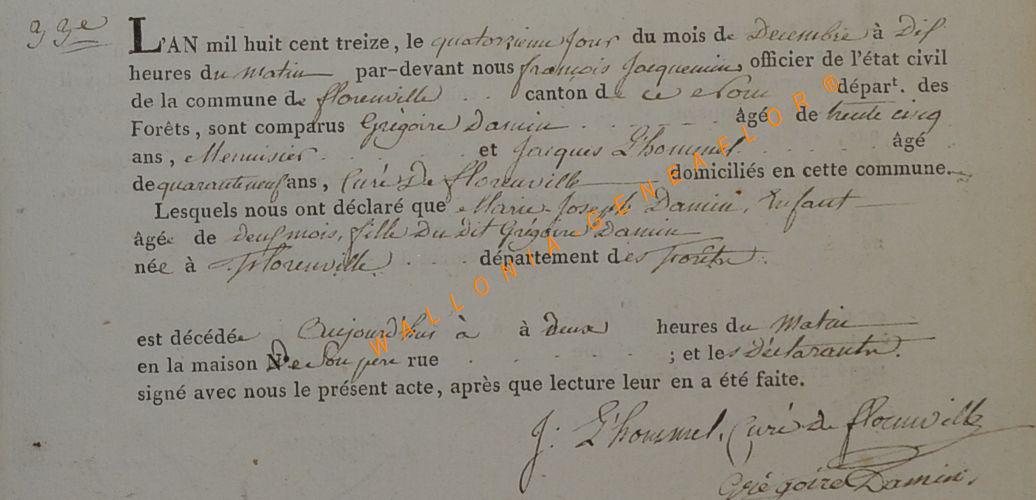 99e
L'AN mil huit cent treize, le quatorzieme jour du mois de Decembre à Dix
heures du Matin par-devant nous francois Jacquemin, officier de l'état civil
de la commune de florenville canton de ce Nom départ. des
Forêts, sont comparus Grégoire Damin âgé de trente cinq
ans, Menuisier et Jacques L'hommel âgé
de quarante neuf ans, Curé De florenville domiciliés en cette commune.
Lesquels nous ont déclaré que Marie Joseph Damin, Enfant
âgée de Deux mois, fille Du Dit Grégoire Damin
née à Florenville département des Forêts
est décédée Aujourd'hui à à deux heures du Matin
en la maison De Son pere rue ; et les Déclarants
signé avec nous le présent acte, après que lecture leur en a été faite.
J: L'hommel, Curé de florenville
Grégoire Damin,
WALLONIA GENEAFLOR ®